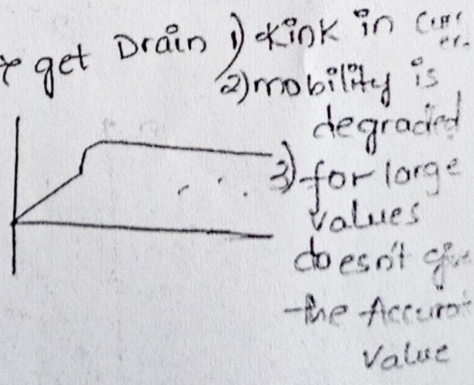 get Drain 1) Kink in
2) mobility is
degraded
3) for large
values
doesn't
the
Value